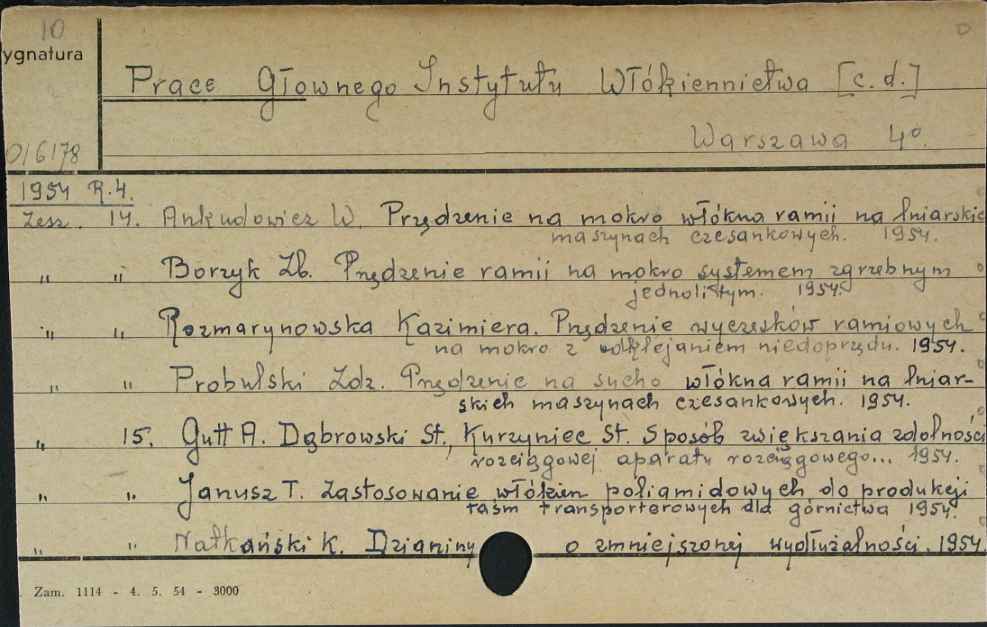 10
ygnatura
Prace Głownego Instytutu Włókiennictwa [c.d.]
Warszawa 4°.
O/6178
1954 R.4.
Zesz. 14. Ankudowicz W. Przędzenie na mokro włókna ramii na lniarskic
maszynach czesankowych. 1954.
„ „ Borzyk Zb. Przędzenie ramii na mokro systemem zgrzebnym
jednolitym. 1954.
„ „ Rozmarynowska Kazimiera. Przędzenie wyczesków ramiowych
na mokro z odklejaniem niedoprzędu. 1954.
„ „ Probulski Zdz. Przędzenie na sucho włókna ramii na lniar-
skich maszynach czesankowych. 1954.
„ 15. Gutt A. Dąbrowski St., Kurzyniec St. Sposób zwiększania zdolności
rozciągowej aparatu rozciągowego... 1954.
„ „ Janusz T. Zastosowanie włókien poliamidowych do produkcji
taśm transporterowych dla górnictwa 1954.
„ „ Natkański K. Dzianiny o zmniejszonej wydłużalności. 1954.
Zam. 1114 - 4. 5. 54 - 3000